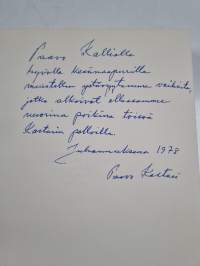 Paavo Kalliolla
hyvälle kesänaapurille
muistellen ystävyytemme vaiheita,
jotka alkoivat ollessamme
nuorina poikina töissä
Kostarin pelloilla.
Juhannuksena 1978
Paavo Kostari